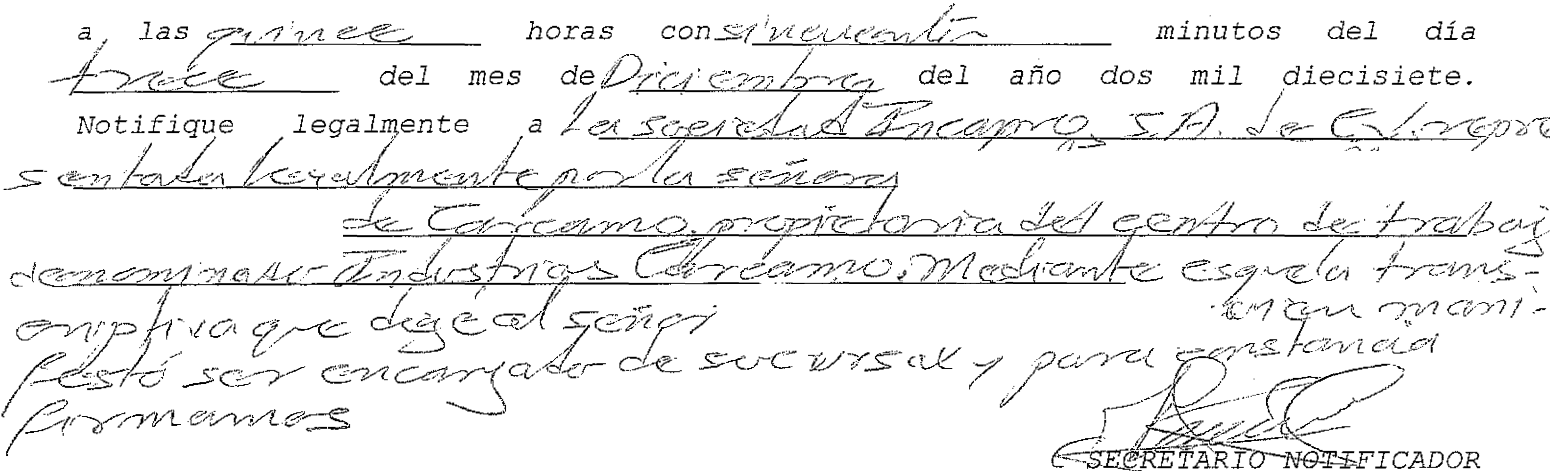 a las quince horas con sincuentin minutos del día
trece del mes de Diciembre del año dos mil diecisiete.
Notifique legalmente a la sociedad Incapro, S.A. de C.V. repre
sentada legalmente por la señora
de Carcamo, propietaria del centro de trabajo
denominado Industrias Carcamo. Mediante esquela trans-
criptiva que dejé al señor quien mani-
festó ser encargado de sucursal y para constancia
firmamos
SECRETARIO NOTIFICADOR